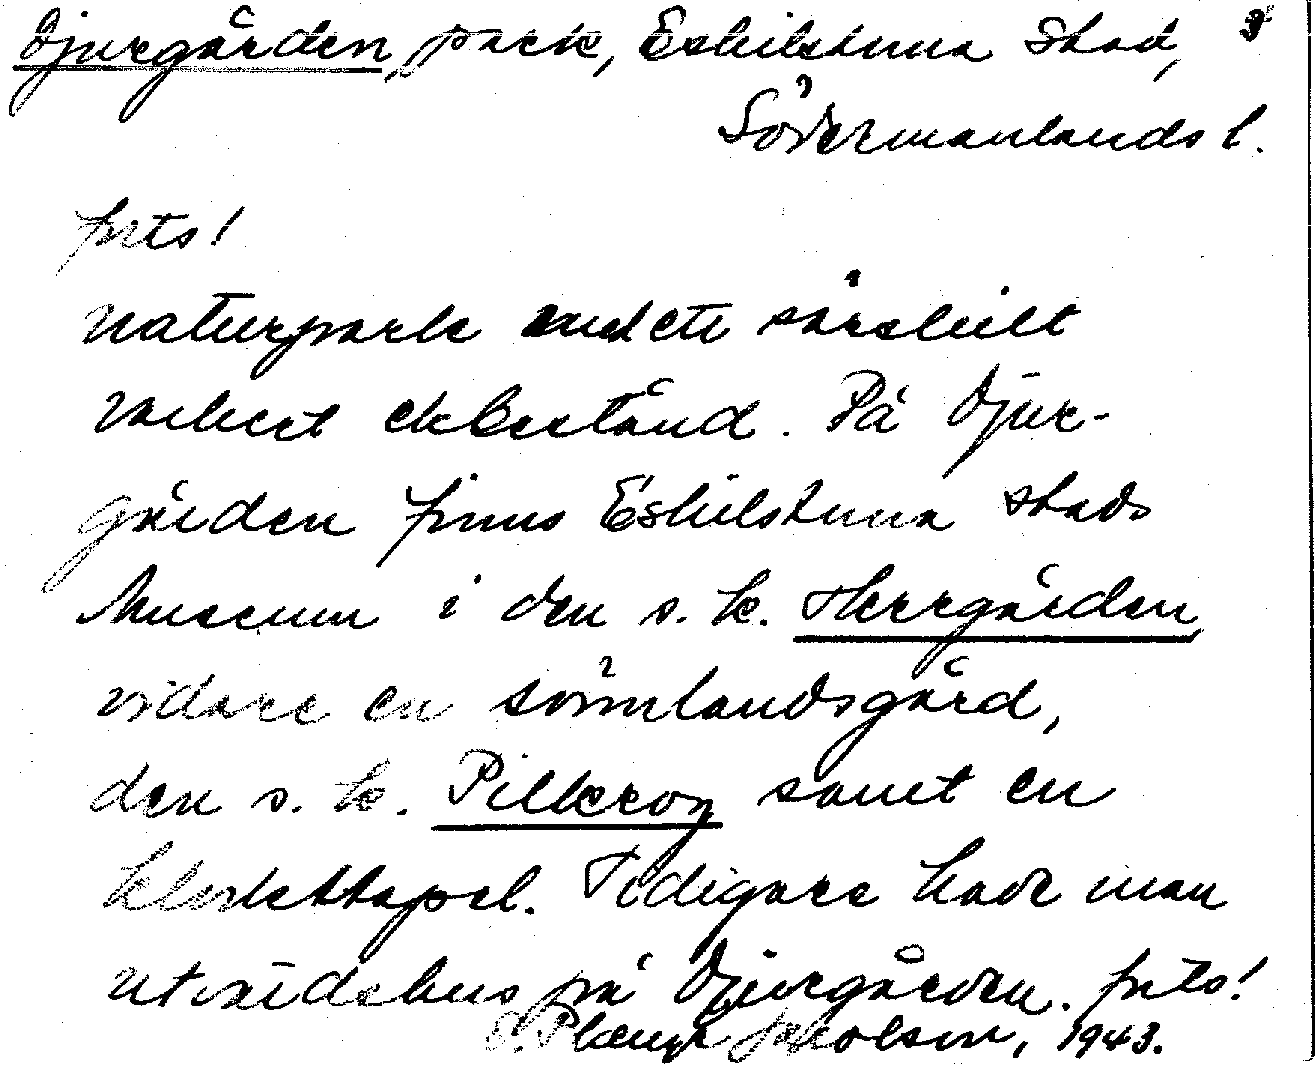 Djurgården, park, Eskilstuna stad, 3
Södermanlands l.
forts!
Naturpark med ett särskilt
vackert ekbestånd. På Djur-
gården finns Eskilstuna stads
Museum i den s.k. Herrgården,
vidare en sörmlandsgård,
den s.k. Pilkrog samt en
klockstapel. Tidigare hade man
utvärdshus på Djurgården. forts!
Jakobson, 1943.